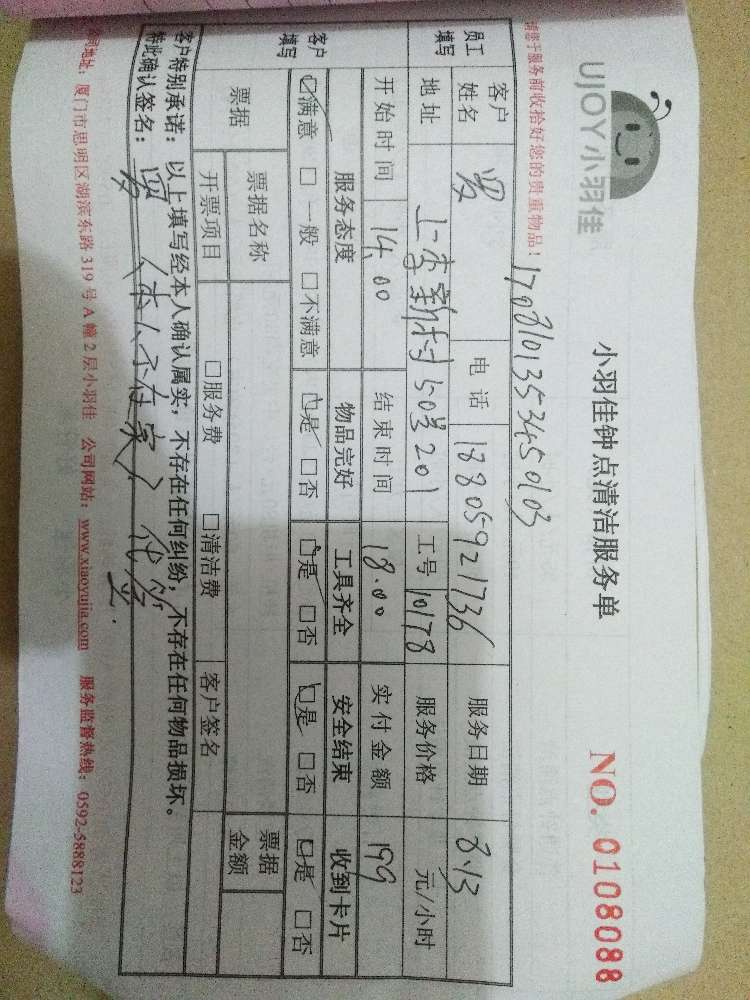 UJOY小羽佳
小羽佳钟点清洁服务单
NO. 0108088
请您于服务前收拾好您的贵重物品！
1708101353450103
员工填写 客户姓名 罗 电话 18805921736 服务日期 8.13
地址 上李新村50号201 工号 10178 服务价格 元/小时
开始时间 14.00 结束时间 18.00 实付金额 199
客户填写 服务态度 物品完好 工具齐全 安全结束 收到卡片
☑满意 □一般 □不满意 ☑是 □否 ☑是 □否 ☑是 □否 ☑是 □否
票据 票据名称 票据金额
开票项目 □服务费 □清洁费 客户签名
客户特别承诺：以上填写经本人确认属实，不存在任何纠纷，不存在任何物品损坏。
特此确认签名：罗（本人不在家）代签
公司地址：厦门市思明区湖滨东路319号A幢2层小羽佳 公司网站：www.xiaoyujia.com 服务监督热线：0592-5888123